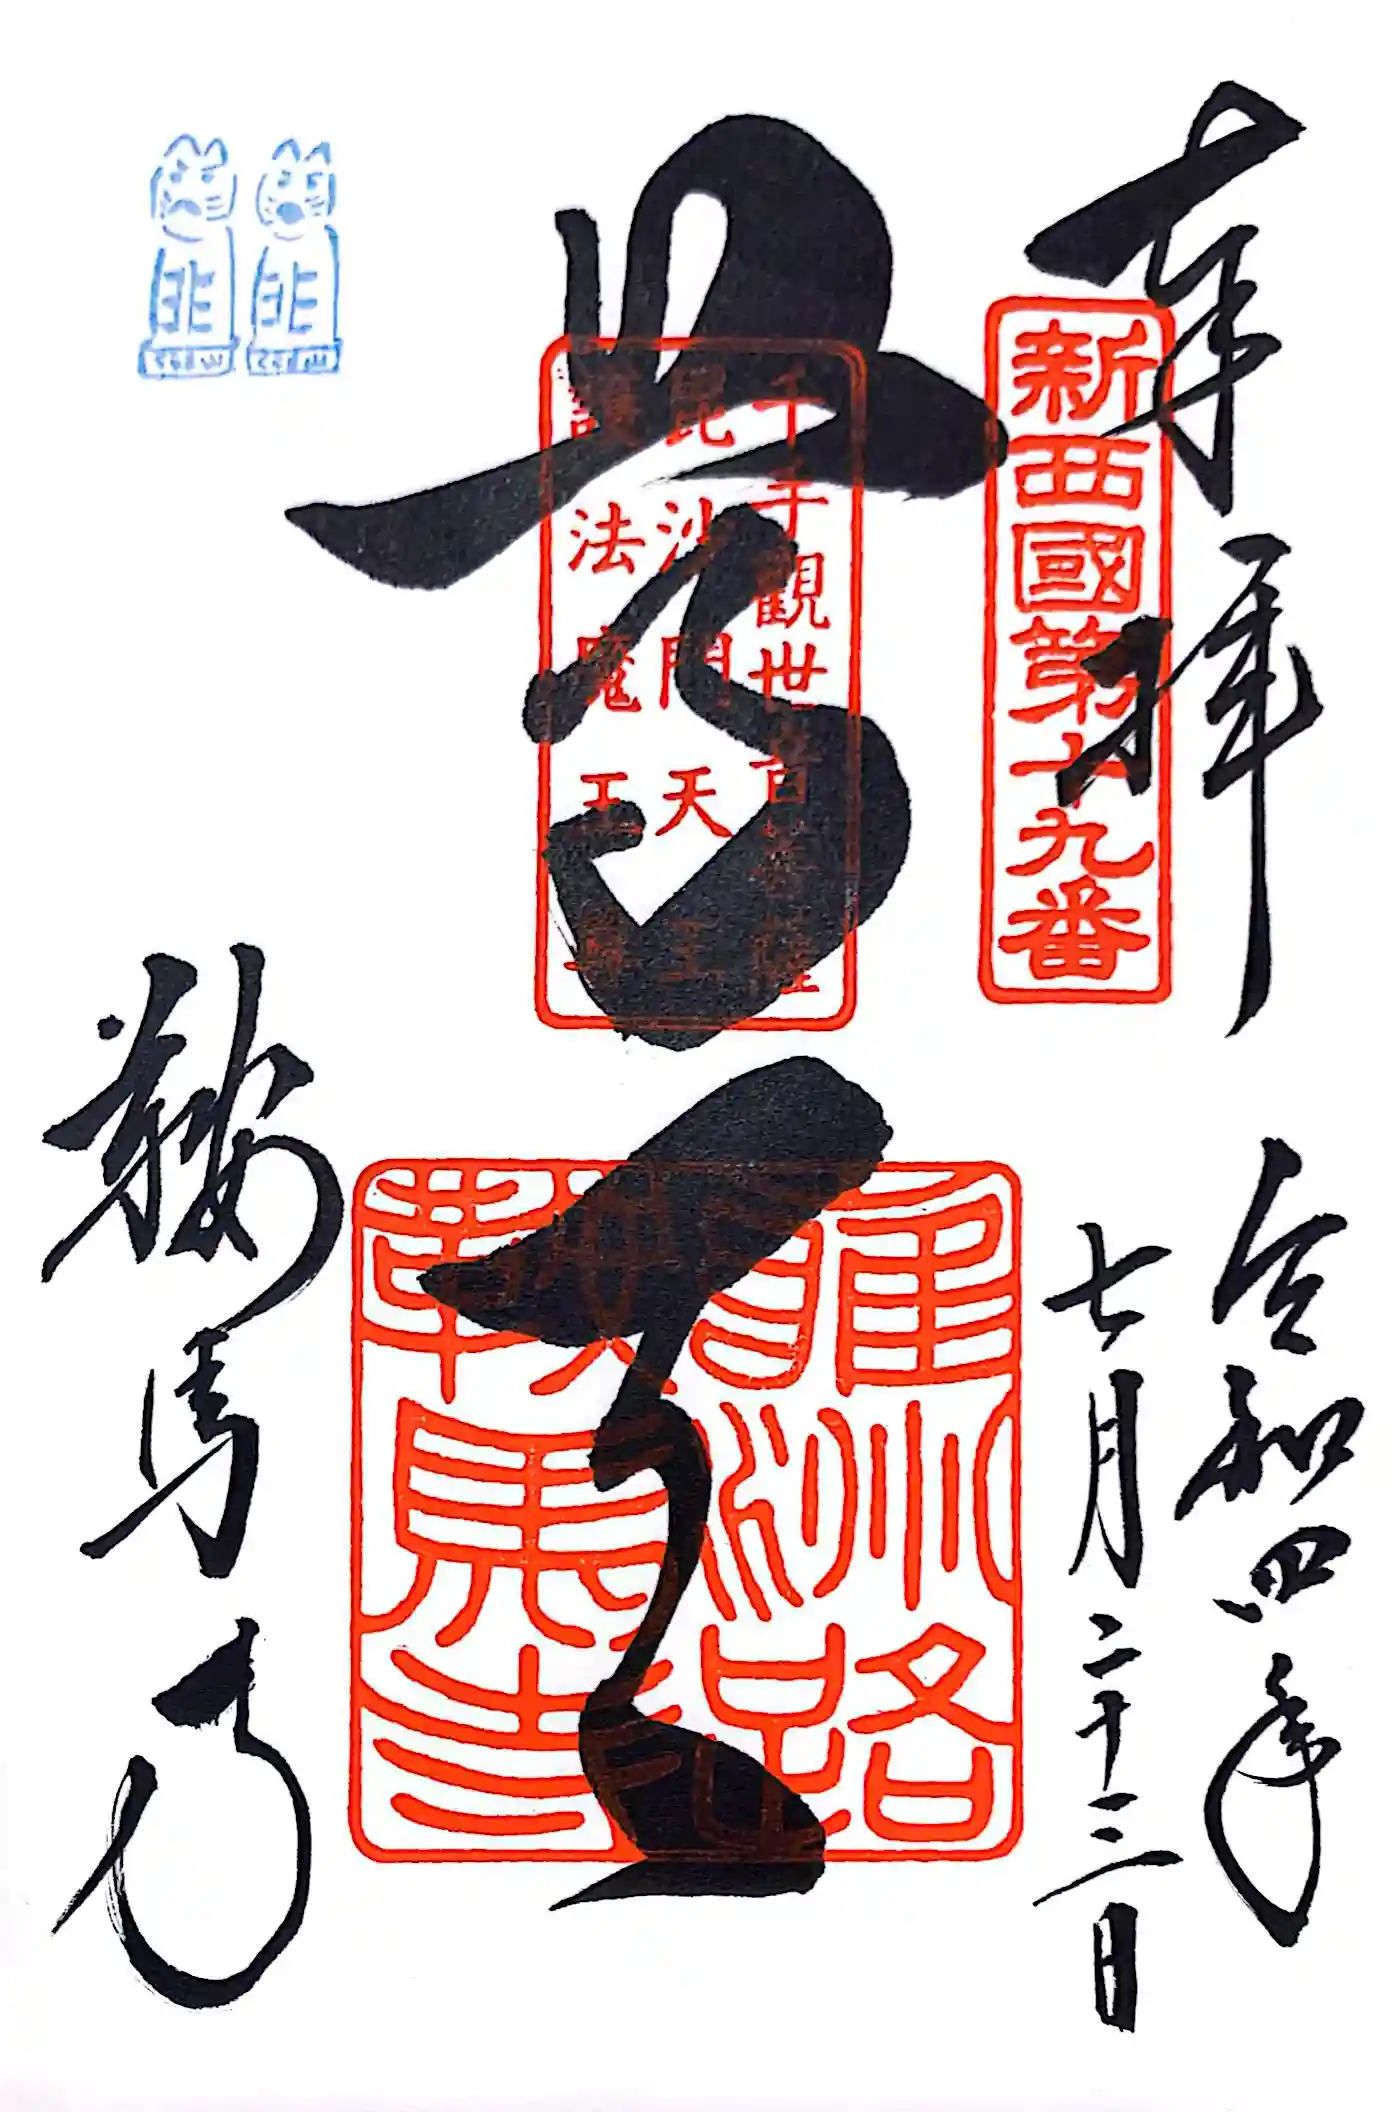 奉拝
新西國第十九番
令和四年
七月二十三日
千手觀世音菩薩
毘沙門天王
護法魔王尊
尊天
雍州路
鞍馬寺
鞍馬寺